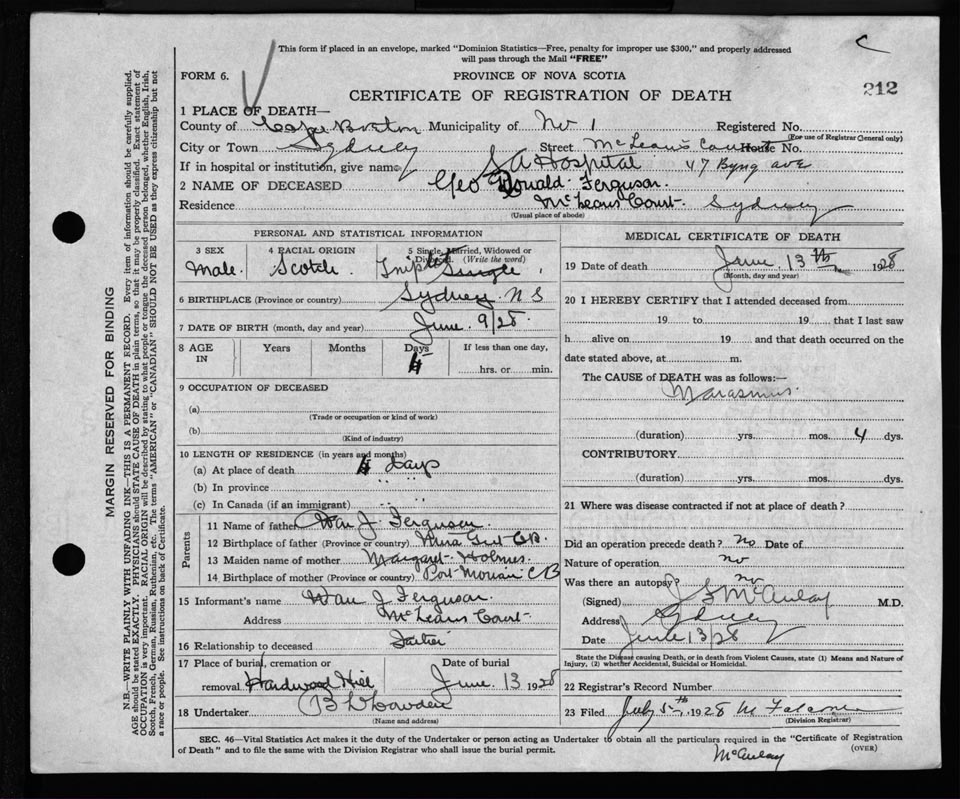 This form if placed in an envelope, marked "Dominion Statistics—Free, penalty for improper use $300," and properly addressed
will pass through the Mail "FREE"
C
FORM 6. PROVINCE OF NOVA SCOTIA
212
CERTIFICATE OF REGISTRATION OF DEATH
1 PLACE OF DEATH—
County of Cape Breton Municipality of No 1 Registered No.
(For use of Registrar General only)
City or Town Sydney Street McLeans Court House No.
If in hospital or institution, give name Hospital 47 Byng ave
2 NAME OF DECEASED Geo Donald Ferguson.
Residence McLeans Court Sydney
(Usual place of abode)
PERSONAL AND STATISTICAL INFORMATION
3 SEX 4 RACIAL ORIGIN 5 Single, Married, Widowed or Divorced. (Write the word)
Male. Scotch Triplet Single
6 BIRTHPLACE (Province or country) Sydney. N S
7 DATE OF BIRTH (month, day and year) June. 9/28.
8 AGE IN Years Months Days If less than one day,
4 hrs. or min.
9 OCCUPATION OF DECEASED
(a)
(Trade or occupation or kind of work)
(b)
(Kind of industry)
10 LENGTH OF RESIDENCE (in years and months)
(a) At place of death 4 days
(b) In province " "
(c) In Canada (if an immigrant) " "
Parents
11 Name of father Wm J. Ferguson.
12 Birthplace of father (Province or country) Mira Gut C.B.
13 Maiden name of mother Margaret Holmes
14 Birthplace of mother (Province or country) Port Morien C B
15 Informant's name Wm J Ferguson.
Address McLeans Court
16 Relationship to deceased Father
17 Place of burial, cremation or Date of burial
removal. Hardwood Hill June 13 1928
18 Undertaker
(Name and address)
MEDICAL CERTIFICATE OF DEATH
19 Date of death June 13th 1928
(Month, day and year)
20 I HEREBY CERTIFY that I attended deceased from
19 to 19 that I last saw
h alive on 19 and that death occurred on the
date stated above, at m.
The CAUSE of DEATH was as follows:—
Marasmus
(duration) yrs. mos. 4 dys.
CONTRIBUTORY
(duration) yrs. mos. dys.
21 Where was disease contracted if not at place of death?
Did an operation precede death? No Date of
Nature of operation no
Was there an autopsy? no
(Signed) McAulay M.D.
Address Sydney
Date June 13/28
State the Disease causing Death, or in death from Violent Causes, state (1) Means and Nature of
Injury, (2) whether Accidental, Suicidal or Homicidal.
22 Registrar's Record Number
23 Filed July 5th 1928
(Division Registrar)
SEC. 46—Vital Statistics Act makes it the duty of the Undertaker or person acting as Undertaker to obtain all the particulars required in the "Certificate of Registration
of Death" and to file the same with the Division Registrar who shall issue the burial permit.
(OVER)
McAulay
MARGIN RESERVED FOR BINDING
N.B.—WRITE PLAINLY WITH UNFADING INK—THIS IS A PERMANENT RECORD. Every item of information should be carefully supplied.
AGE should be stated EXACTLY. PHYSICIANS should STATE CAUSE OF DEATH in plain terms, so that it may be properly classified. Exact statement of
OCCUPATION is very important. RACIAL ORIGIN will be described by stating to what people or tongue the deceased person belonged, whether English, Irish,
Scotch, French, German, Russian, Ruthenian, etc. The terms "AMERICAN" or "CANADIAN" SHOULD NOT BE USED as they express citizenship but not
a race or people. See instructions on back of Certificate.